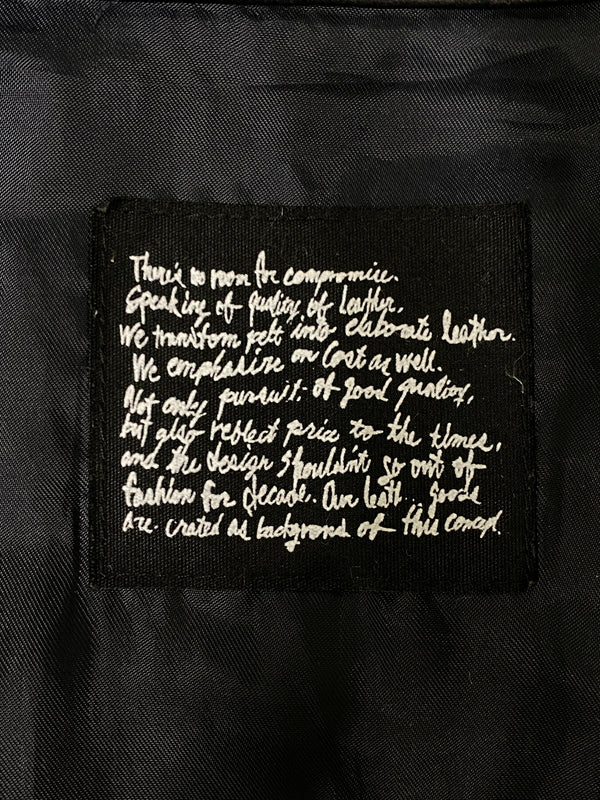 There's no room for compromise.
Speaking of quality of leather,
We transform pelt into elaborate leather.
We emphasize on Cost as well.
Not only pursuit of good quality,
but also reflect price to the times,
and the design shouldn't go out of
fashion for decade. Our leath... goods
are crated as background of this concept.